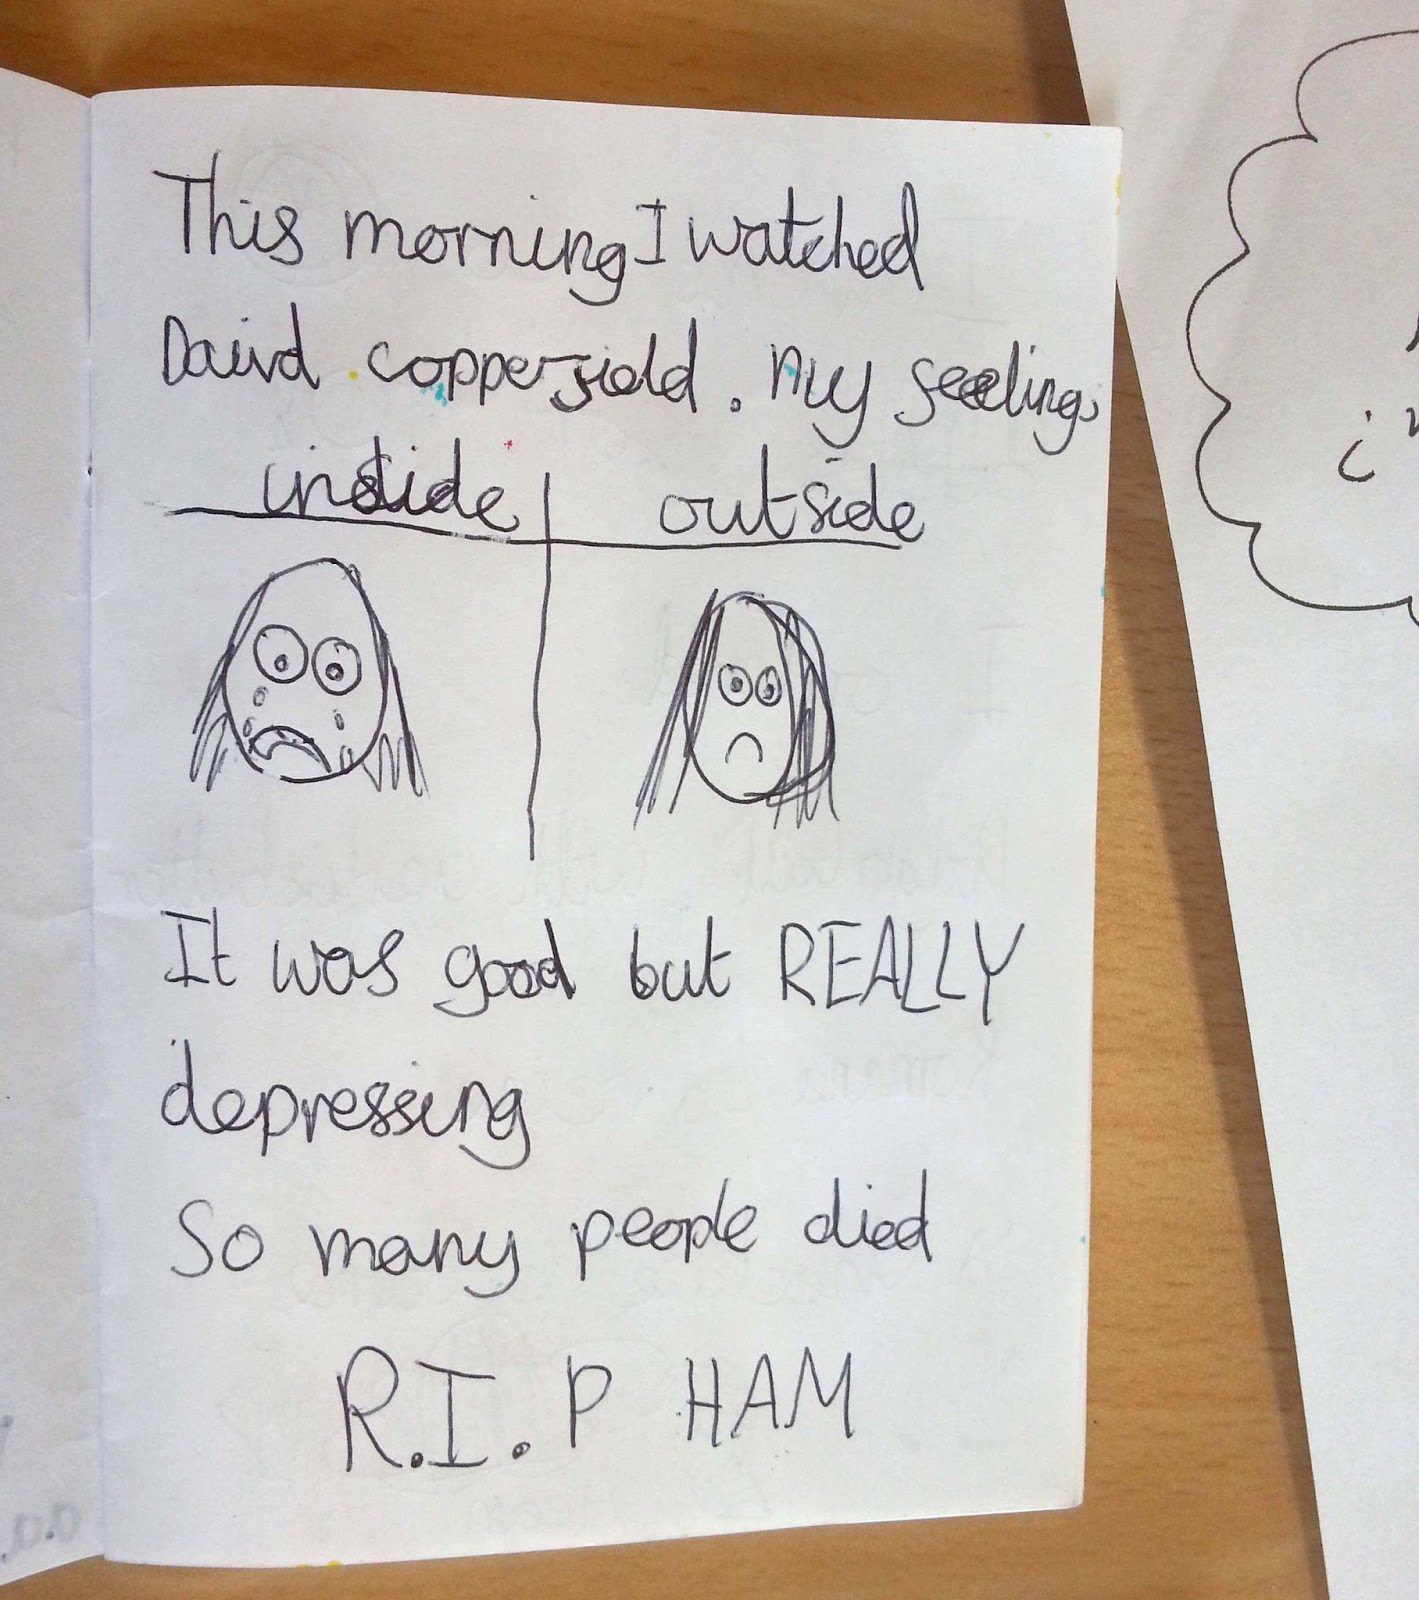 This morning I watched
David copperfield. My feelings
inside outside
It was good but REALLY
depressing
So many people died
R.I.P HAM